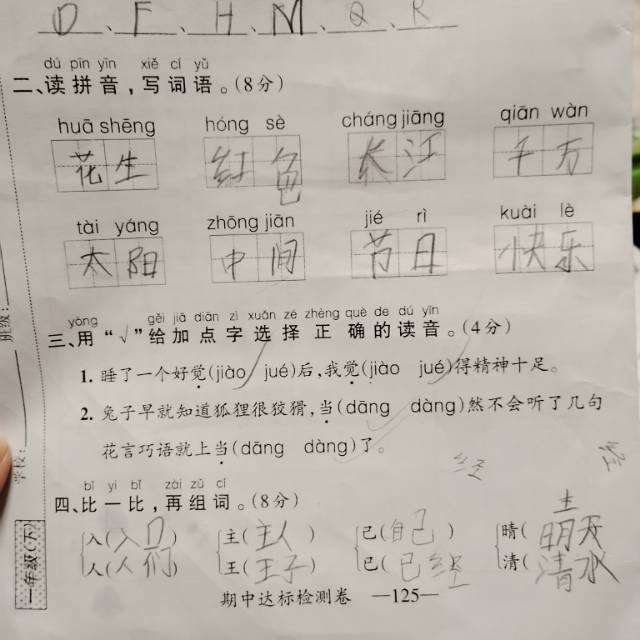 D、F、H、M、Q、R
dú pīn yīn xiě cí yǔ
二、读拼音，写词语。(8分)
huā shēng hóng sè cháng jiāng qiān wàn
花生 红色 长江 千万
tài yáng zhōng jiān jié rì kuài lè
太阳 中间 节日 快乐
yòng gěi jiā diǎn zì xuǎn zé zhèng què de dú yīn
三、用“√”给加点字选择正确的读音。(4分)
1. 睡了一个好觉(jiào jué)后,我觉(jiào jué)得精神十足。
2. 兔子早就知道狐狸很狡猾,当(dāng dàng)然不会听了几句
花言巧语就上当(dāng dàng)了。
经 经
bǐ yi bǐ zài zǔ cí
四、比一比，再组词。(8分)
入(入口) 主(主人) 己(自己) 晴(明天
人(人们) 王(王子) 已(已经 清(清水
班级:
学校:
一年级(下)
期中达标检测卷 —125—